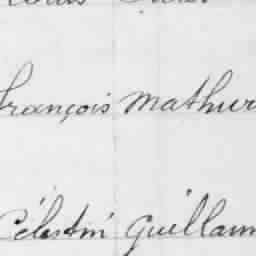 François Mathur
Célestin Guillaum